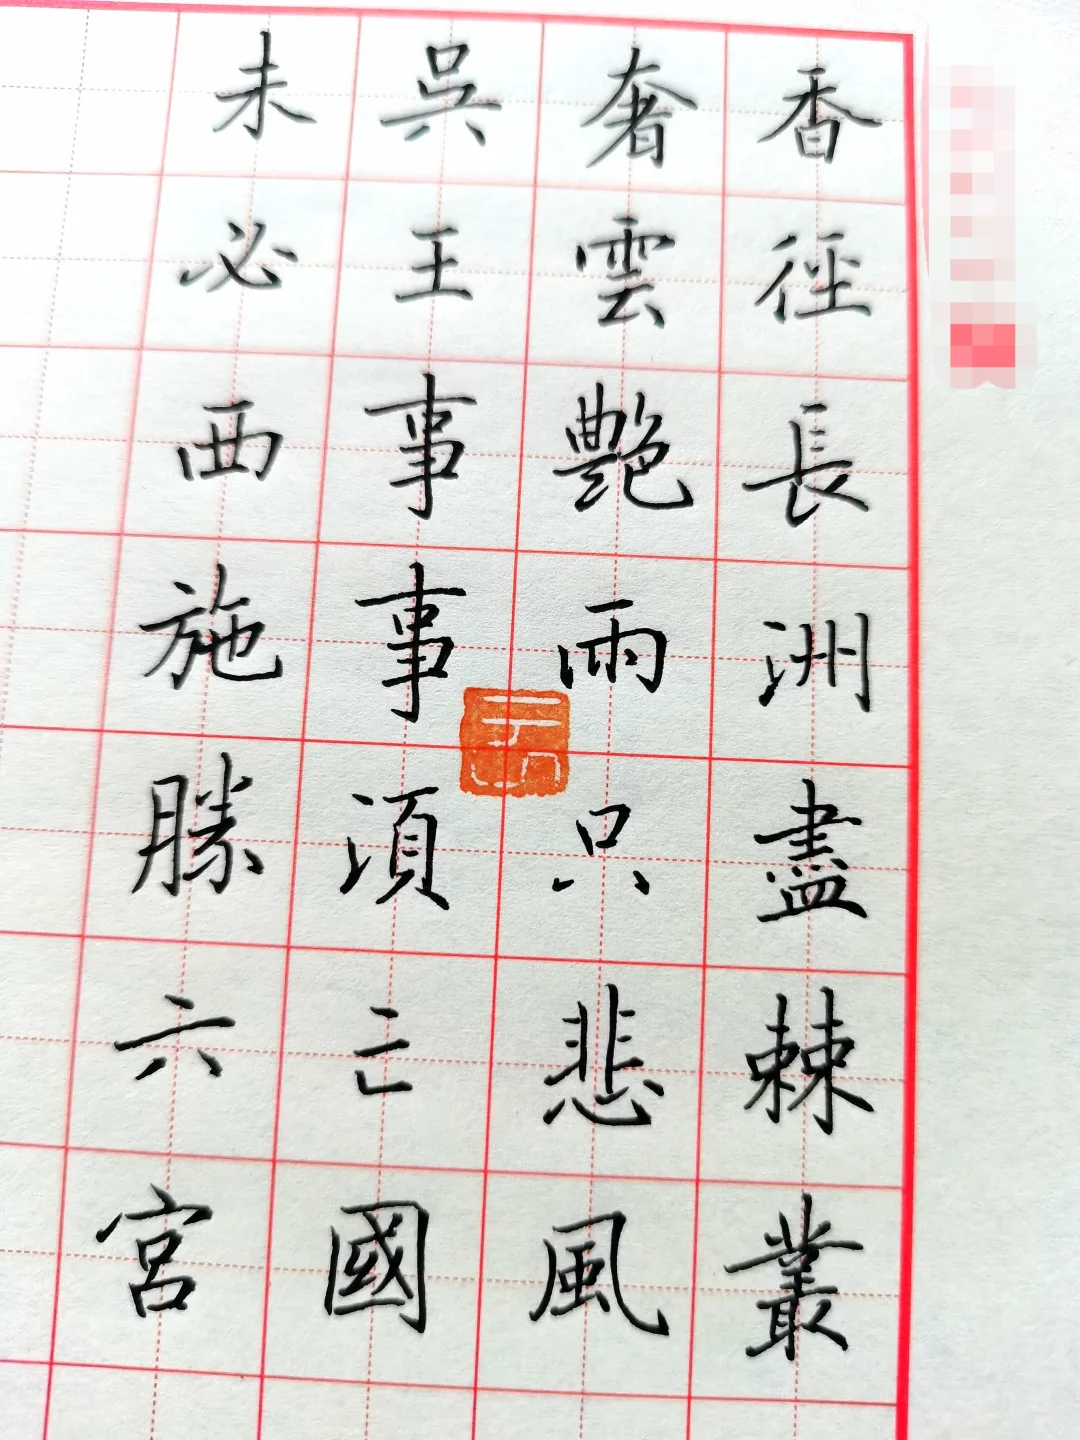 香徑長洲盡棘叢
奢雲艷雨只悲風
吳王事事湏亡國
未必西施勝六宮